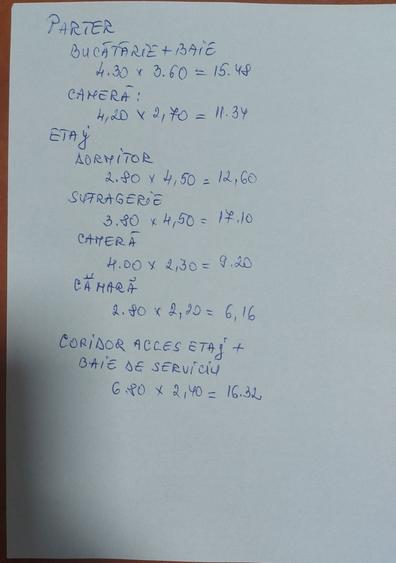 PARTER
BUCĂTĂRIE + BAIE
4.30 x 3.60 = 15.48
CAMERĂ:
4,20 x 2,70 = 11.34
ETAj
DORMITOR
2.80 x 4,50 = 12,60
SUFRAGERIE
3.80 x 4,50 = 17.10
CAMERĂ
4.00 x 2,30 = 9.20
CĂMARĂ
2.80 x 2,20 = 6,16
CORIDOR ACCES ETAj +
BAIE DE SERVICIU
6.80 x 2,40 = 16.32